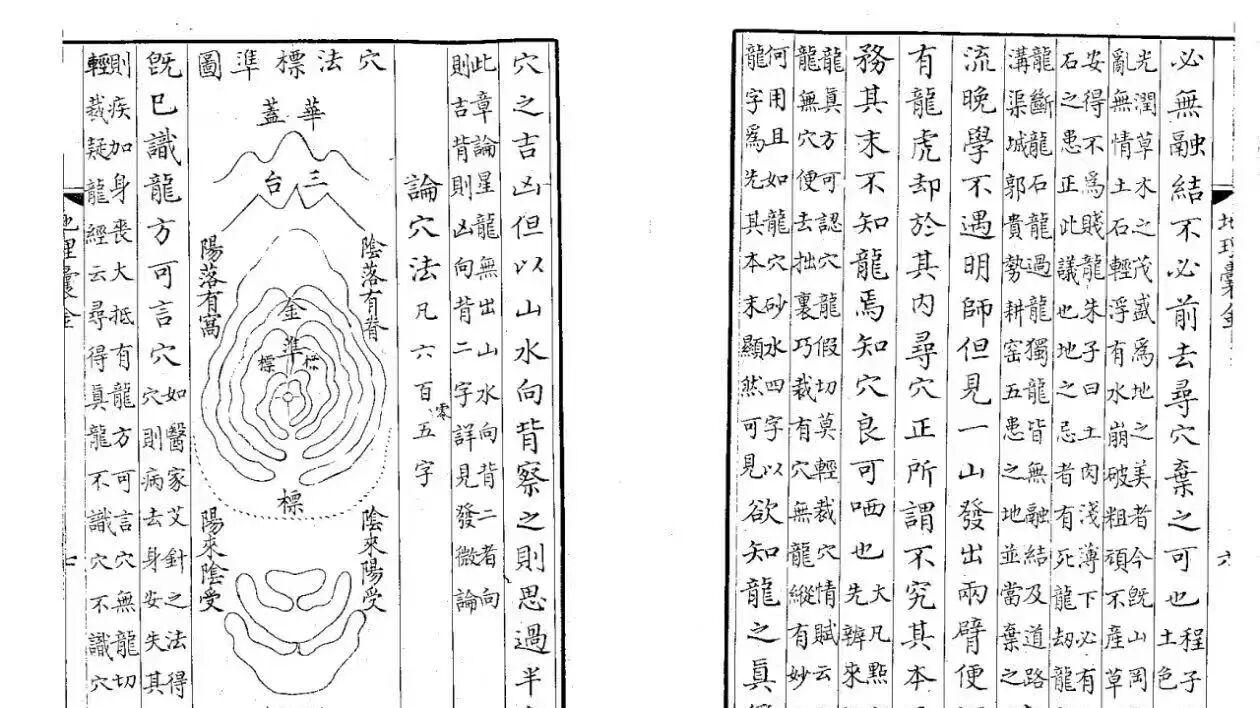 必無融結不必前去尋穴棄之可也
程子
土色
光潤草木之茂盛爲地之美者今旣山岡
亂無情土石輕浮有水崩破粗頑不產草
安得不爲賤龍朱子曰土肉淺薄下必有
石之患正此議也地之忌者有死龍劫龍
龍斷龍石龍過龍獨龍皆無融結及道路
溝渠城郭貴勢耕窑五患之地並當棄之
流晚學不遇明師但見一山發出兩臂便
有龍虎却於其内尋穴正所謂不究其本
務其末不知龍焉知穴良可哂也
大凡點
先辨來
龍眞方可認穴龍假切莫輕裁穴情賦云
龍無穴便去拙裏巧裁有穴無龍縱有妙
何用且如龍穴砂水四字以
龍字爲先其本末顯然可見
欲知龍之眞
穴之吉凶但以山水向背察之則思過半
此章論星龍無出山水向背二者向
則吉背則凶向背二字詳見發微論
論穴法凡六百零五字
穴法標準圖
華蓋
三台
陰落有脊
陽落有窩
金
準
標
標
標
陰來陽受
陽來陰受
旣已識龍方可言穴
如醫家艾針之法得
穴則病去身安失其
則疾加身喪大抵有龍方可言穴無龍切
輕裁疑龍經云尋得眞龍不識穴不識穴
七